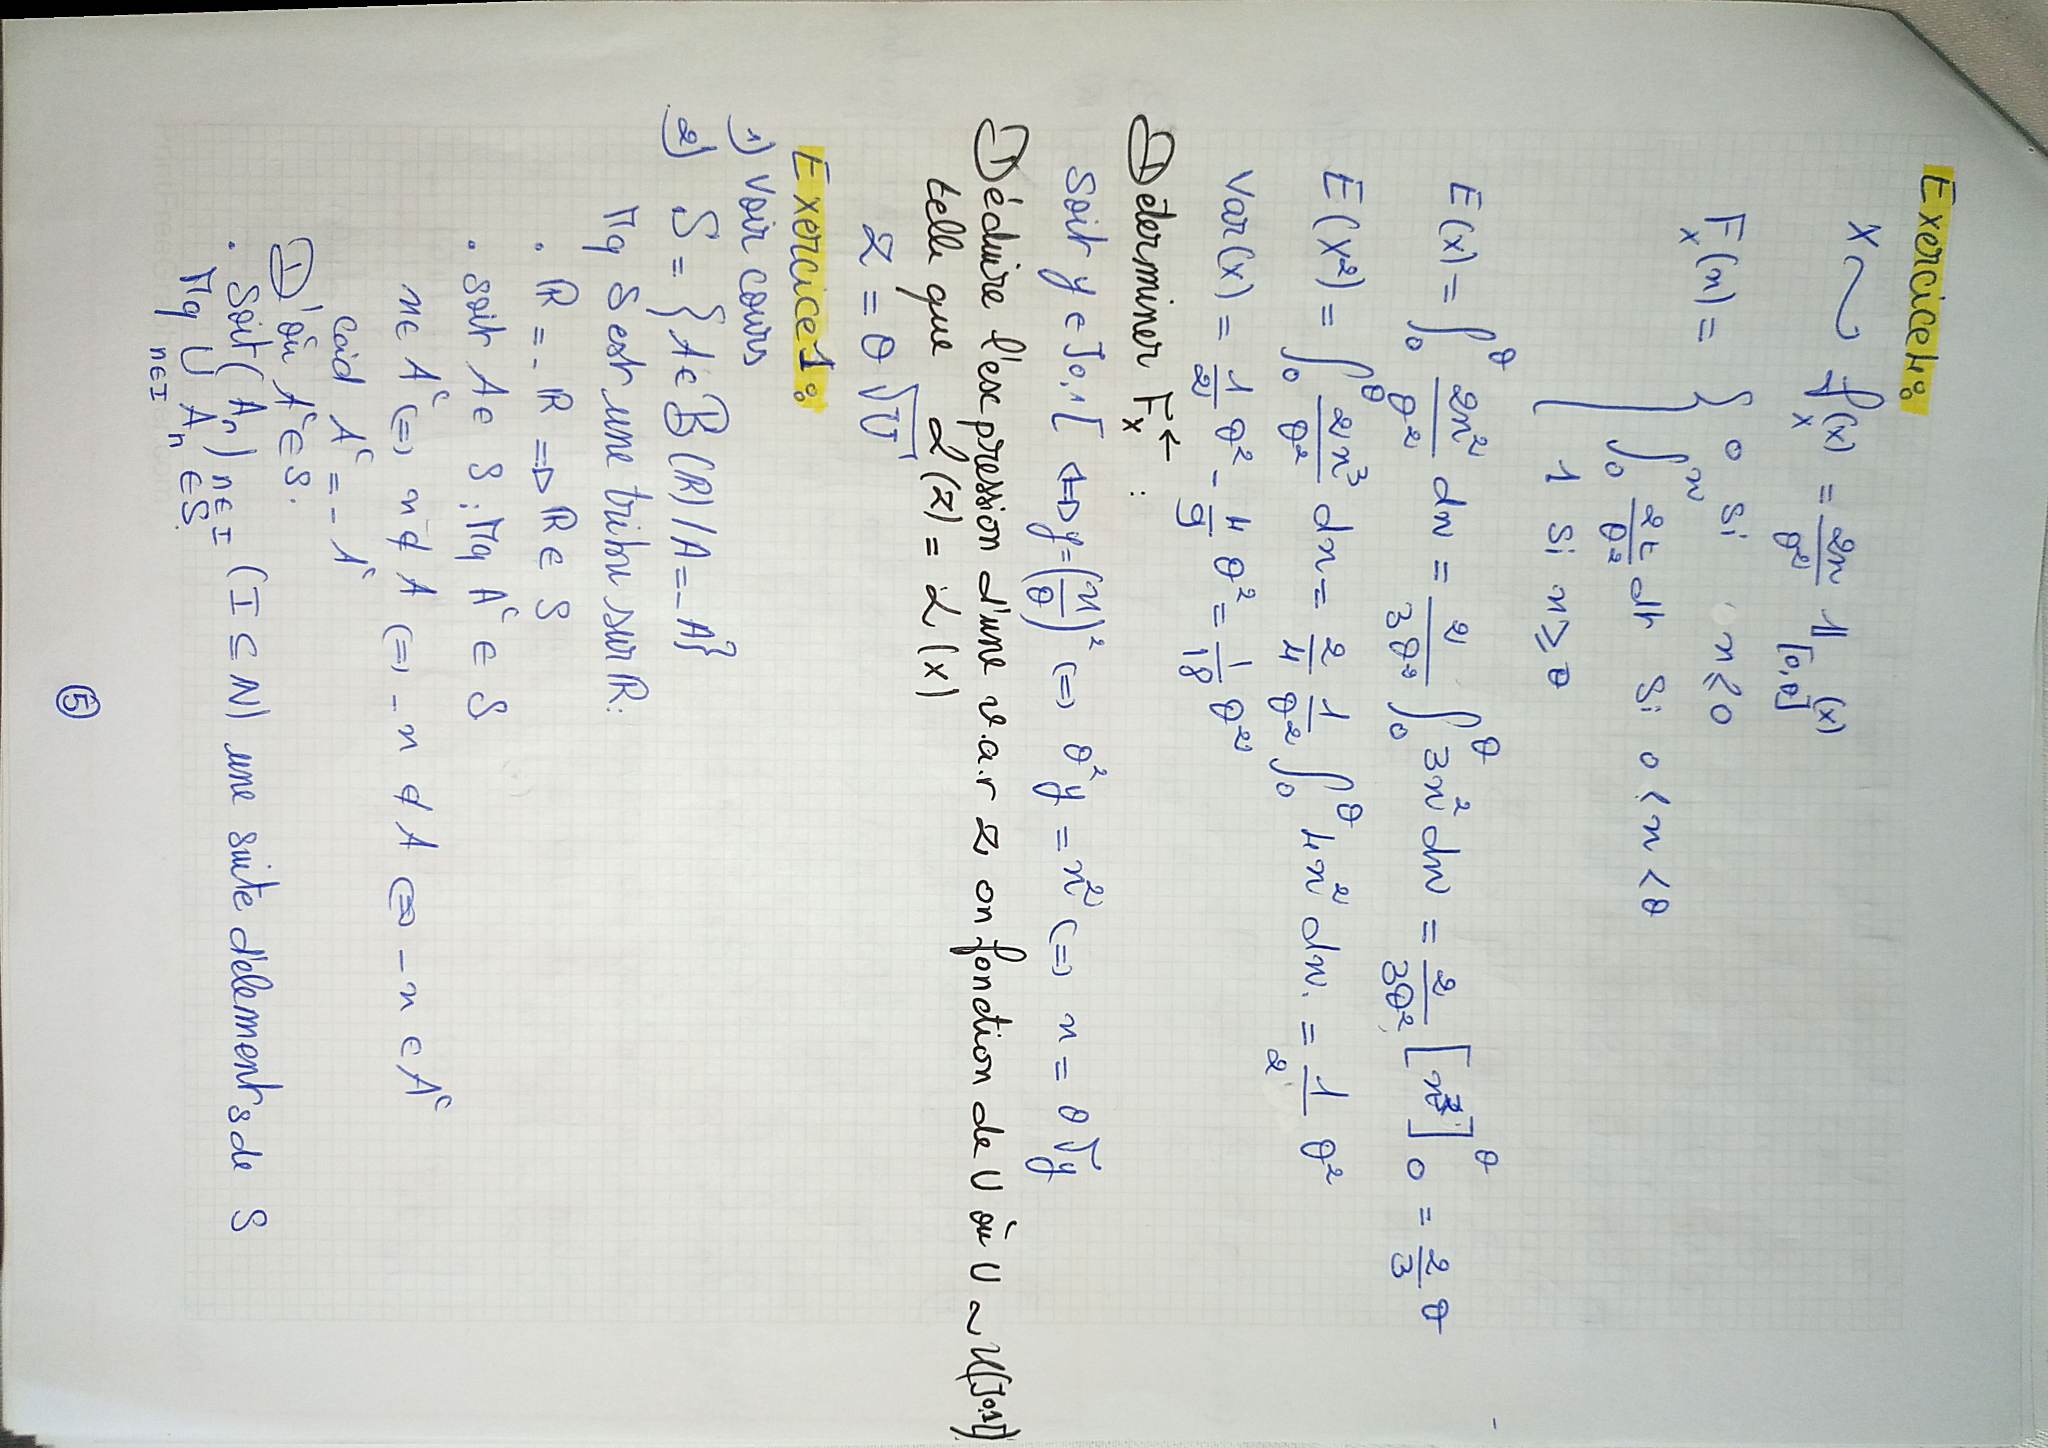 Exercice 4:
X ~ f_X(x) = 2x/θ² 𝟙_[0,θ](x)
F_X(x) = { 0 si x ≤ 0
∫_0^x 2t/θ² dt si 0 < x < θ
1 si x ≥ θ
E(X) = ∫_0^θ 2x²/θ² dx = 2/3θ² ∫_0^θ 3x² dx = 2/3θ² [x³]_0^θ = 2/3 θ
E(X²) = ∫_0^θ 2x³/θ² dx = 2/4 1/θ² ∫_0^θ 4x² dx. = 1/2 θ²
Var(X) = 1/2 θ² - 4/9 θ² = 1/18 θ²
Déterminer F_X^← :
Soit y ∈ ]0,1[ <=> y = (x/θ)² <=> θ²y = x² <=> x = θ√y
Déduire l'expression d'une v.a.r Z on fonction de U où U ~ U(]0,1[)
telle que L(Z) = L(X)
Z = θ√U
Exercice 1:
1) Voir cours
2) S = {A ∈ B(R) / A = -A}
Mq S est une tribu sur R:
. R = -R => R ∈ S
. soit A ∈ S ; Mq A^c ∈ S
x ∈ A^c <=> x ∉ A <=> -x ∉ A <=> -x ∈ A^c
càd A^c = -A^c
D'où A^c ∈ S.
. Soit (A_n)_{n∈I} (I ⊆ N) une suite d'elements de S
Mq ∪_{n∈I} A_n ∈ S.
5